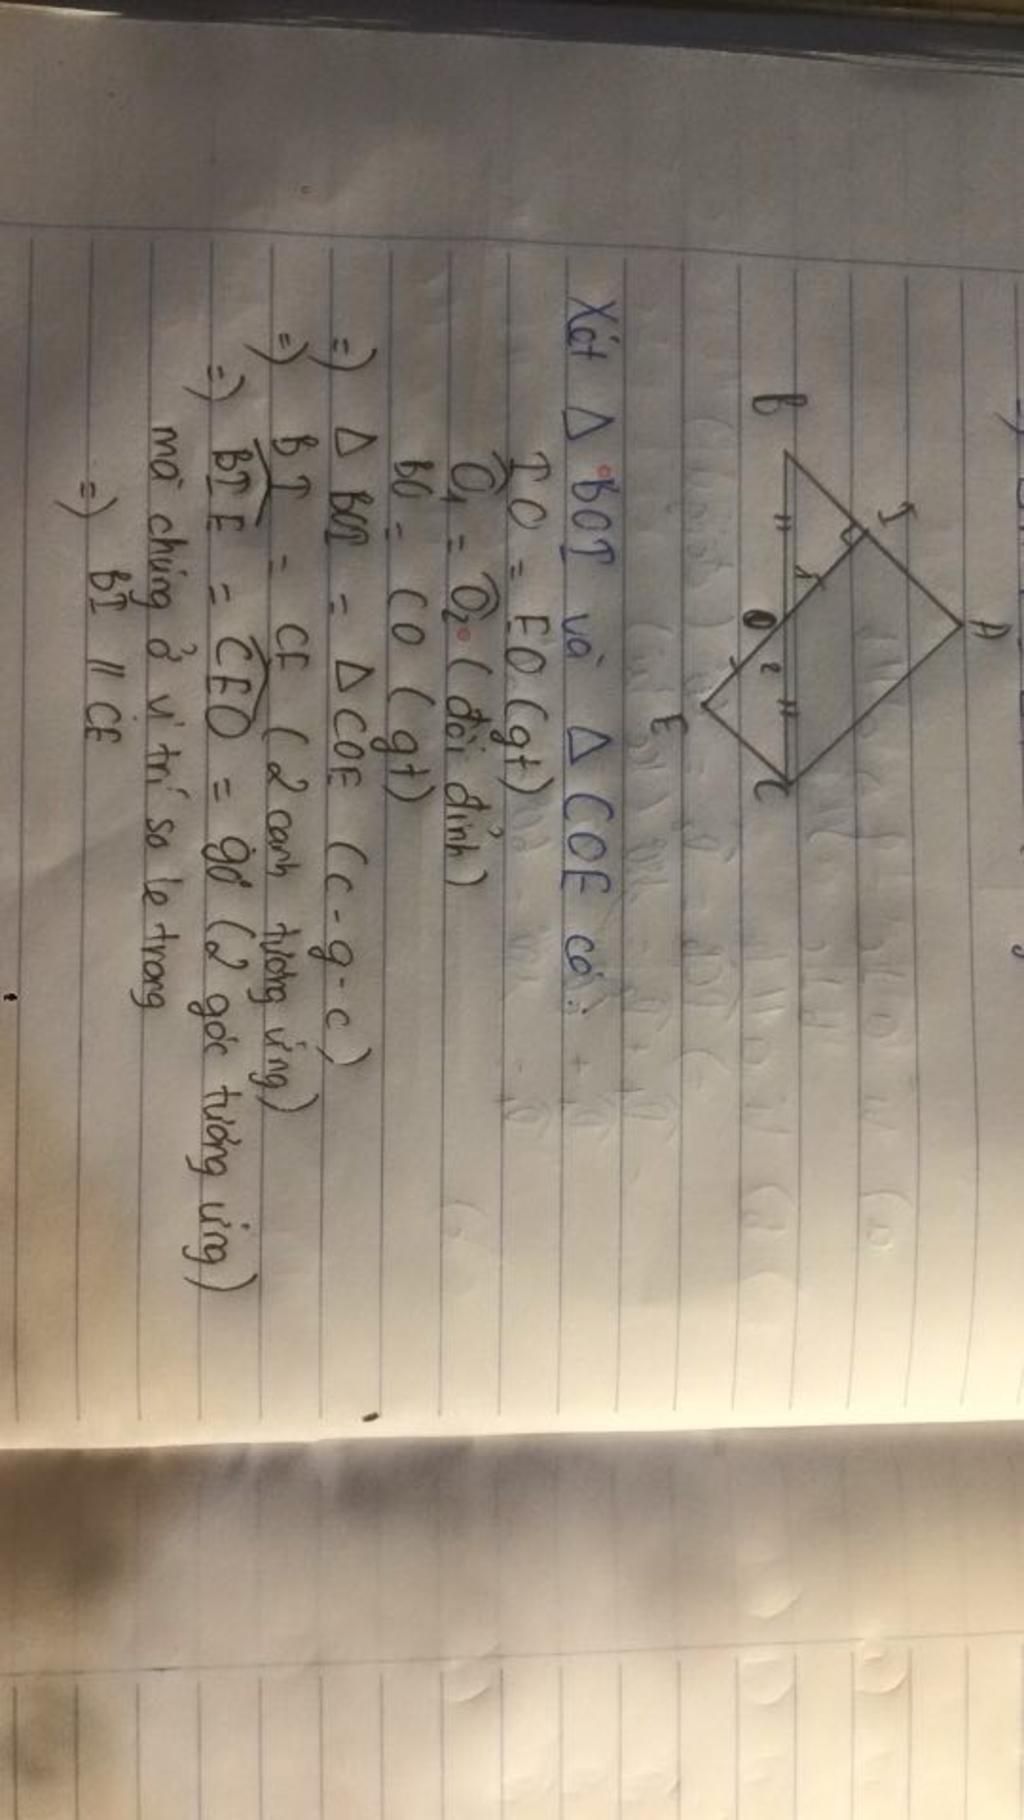 A
I
B
1
O
2
C
E
Xét Δ BOI và Δ COE có:
IO = EO (gt)
Ô1 = Ô2 (đối đỉnh)
BO = CO (gt)
=) Δ BOI = Δ COE (c-g-c)
=) BI = CE (2 cạnh tương ứng)
=) BIE = CEO = 90° (2 góc tương ứng)
mà chúng ở vị trí so le trong
=) BI // CE